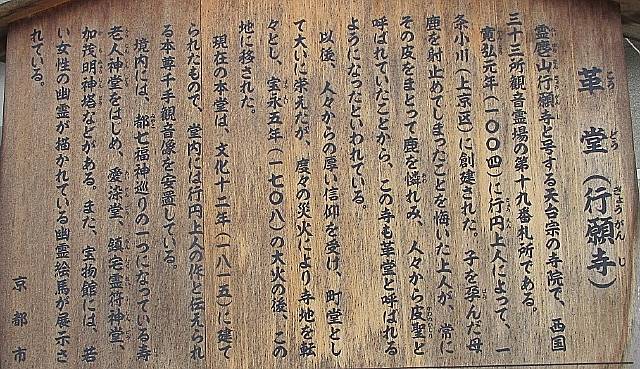 革堂（行願寺）
霊麀山行願寺と号する天台宗の寺院で、西国
三十三所観音霊場の第十九番札所である。
寛弘元年（一〇〇四）に行円上人によって、一
条小川（上京区）に創建された。子を孕んだ母
鹿を射止めてしまったことを悔いた上人が、常に
その皮をまとって鹿を憐れみ、人々から皮聖と
呼ばれていたことから、この寺も革堂と呼ばれる
ようになったといわれている。
以後、人々からの厚い信仰を受け、町堂とし
て大いに栄えたが、度々の災火により寺地を転
々とし、宝永五年（一七〇八）の大火の後、この
地に移された。
現在の本堂は、文化十二年（一八一五）に建て
られたもので、堂内には行円上人の作と伝えられ
る本尊千手観音像を安置している。
境内には、都七福神巡りの一つになっている寿
老人神堂をはじめ、愛染堂、鎮宅霊符神堂、
加茂明神塔などがある。また、宝物館には、若
い女性の幽霊が描かれている幽霊絵馬が展示さ
れている。
京都市